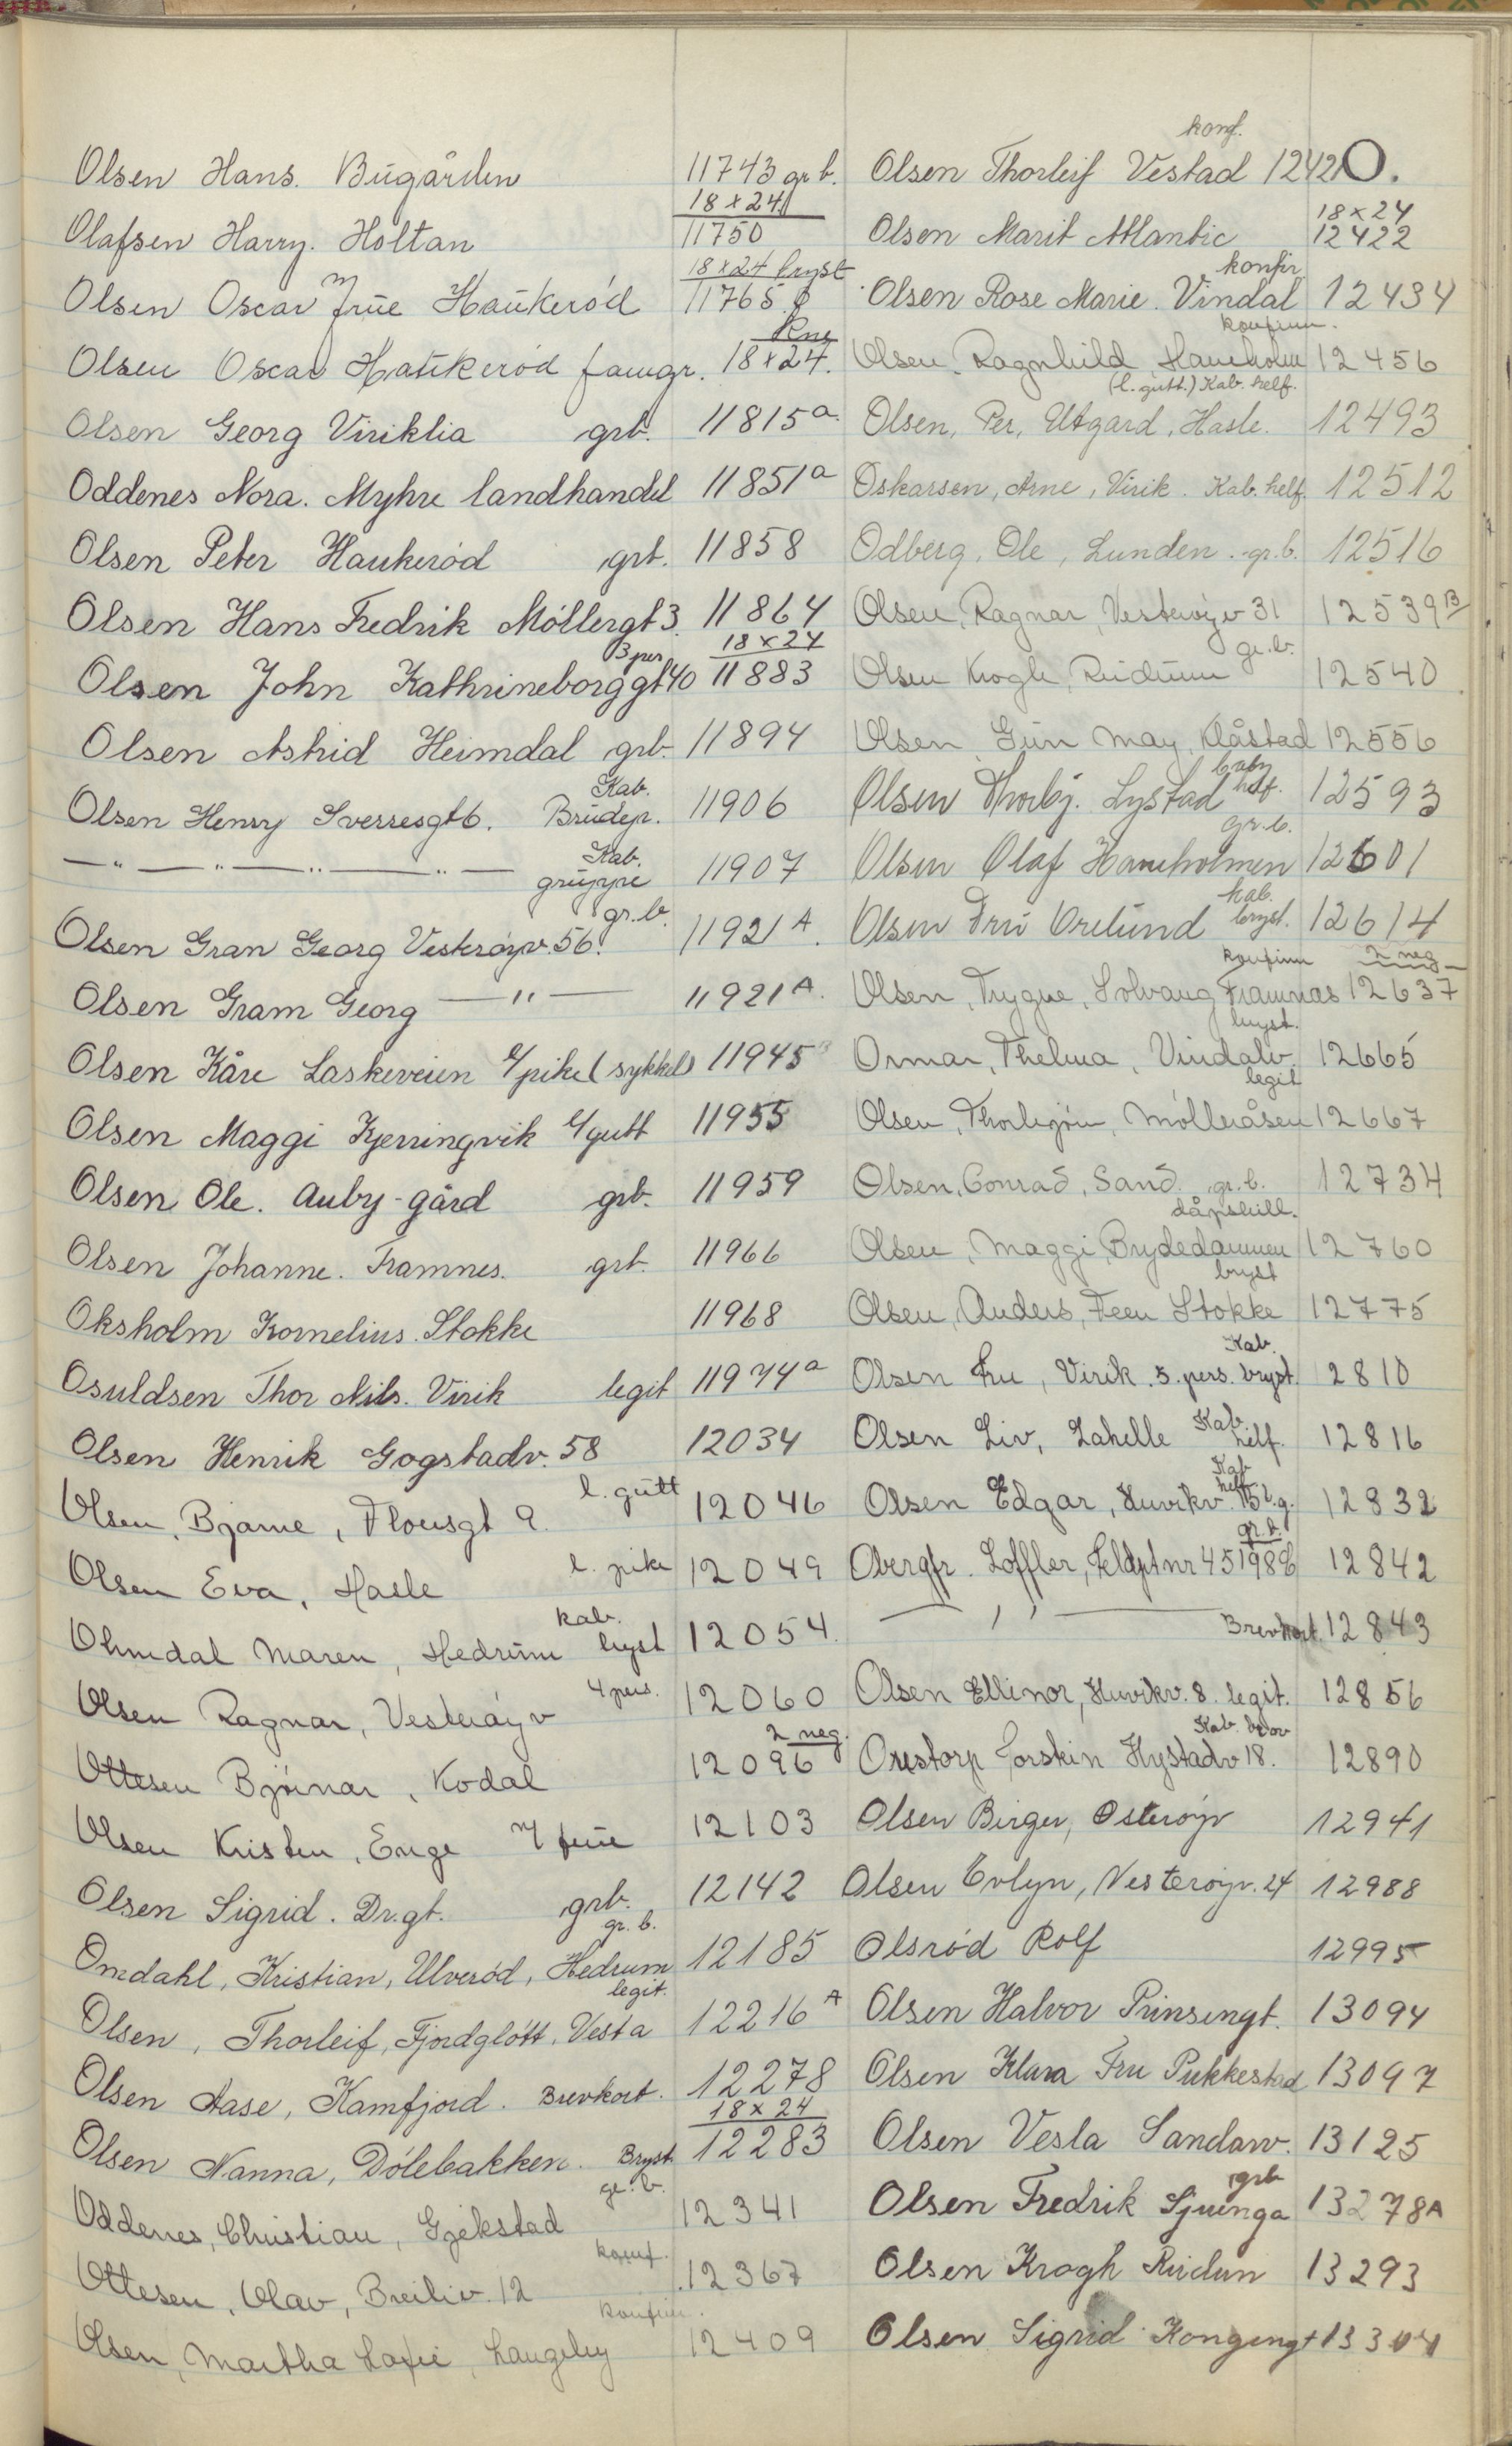 Olsen Hans. Bugården 11743 gr b.
Olafsen Harry. Holtan 18x24 11750
Olsen Oscar m/ frue Haukerød 18x24 bryst 11765
Olsen Oscar Haukerød famgr. Kne 18x24.
Olsen Georg Viriklia grb. 11815a
Oddenes Nora. Myhre landhandel 11851a
Olsen Peter Haukerød grb. 11858
Olsen Hans Fredrik Møllergt 3. 11864
Olsen John Kathrineborggt 40 3 per 18x24 11883
Olsen Astrid Heimdal grb. 11894
Olsen Henry Sverresgt 6. Kab. Brudep. 11906
— " — " — " — " — Kab. gruppe 11907
Olsen Gran Georg Vesterøyv. 56. gr.b. 11921 A.
Olsen Gram Georg — " — 11921 A.
Olsen Kåre Laskeveien l/pike (sykkel) 11945 B
Olsen Maggi Kjerringvik l/gutt 11955
Olsen Ole. Auby-gård grb. 11959
Olsen Johanne. Framnes. grb. 11966
Oksholm Kornelius. Stokke 11968
Osuldsen Thor Nils. Virik legit 11974a
Olsen Henrik Gogstadv. 58 12034
Olsen, Bjarne, Florsgt 9. l. gutt 12046
Olsen Eva, Hasle l. pike 12049
Ohmdal Maren, Hedrum kab. bryst 12054.
Olsen Ragnar, Vesterøyv 4 pers. 12060
Ottesen Bjørnar, Kodal 2 neg. 12096
Olsen Kristen, Enge m/ frue 12103
Olsen Sigrid. Dr.gt. grb. 12142
Omdahl, Kristian, Ulverød, Hedrum gr. b. 12185
Olsen, Thorleif, Fjordgløtt, Vesta legit. 12216 A
Olsen Aase, Kamfjord. Brevkort. 12278
Olsen Nanna, Dølebakken. Bryst 18x24 12283
Oddenes, Christian, Gjekstad gr. b. 12341
Ottesen, Olav, Breiliv. 12 konf. 12367
Olsen, Martha Lovie, Langeby konfir. 12409
O.
Olsen Thorleif Vestad konf. 12421
Olsen Marit Atlantic 18x24 12422
Olsen Rose Marie. Vindal konfir. 12434
Olsen. Ragnhild Haneholm konfirm. 12456
Olsen, Per, Utgard, Hasle. (l. gutt.) Kab. helf. 12493
Oskarsen, Arne, Virik. Kab. helf. 12512
Odberg, Ole, Lunden. gr. b. 12516
Olsen, Ragnar, Vesterøyv 31 12539 B
Olsen Krogh, Rudum gr. b. 12540
Olsen Gun May, Klåstad 12556
Olsen Thorbj. Lystad baby helf. 12593
Olsen Olaf Haneholmen gr. b. 12601
Olsen Fru Orelund kab. bryst. 12614
Olsen, Trygve, Solvang Framnas konfirm 2 neg 12637
Ormar, Thelma, Vindalv. bryst. 12665
Olsen, Thorbjørn, Mølleråsen legit 12667
Olsen, Conrad, Sand. gr. b. 12734
Olsen, Maggi, Brydedammen dåpsbill. 12760
Olsen, Anders, Feen Stokke bryst 12775
Olsen Fru, Virik. 5. pers. Kab. bryst. 12810
Olsen Liv, Lahelle Kab. helf. 12816
Olsen Edgar, Huvikv. 15 Kab helf l. g. 12832
Obergfr. Loffler, Feldpt nr 45198 E gr. b. 12842
— " — Brevkort. 12843
Olsen Ellinor, Huvikv. 8. legit. 12856
Orestorp Torstein Hystadv 18. Kab. 12890
Olsen Birger, Osterøyv 12941
Olsen Evlyn, Vesterøyv. 24 12988
Olsrød Rolf 12995
Olsen Halvor Prinsengt. 13094
Olsen Klara Fru Pukkestad 13097
Olsen Vesla Sandarv. 13125
Olsen Fredrik Sjuenga grb 13278A
Olsen Krogh Rudum 13293
Olsen Sigrid Kongengt 13304